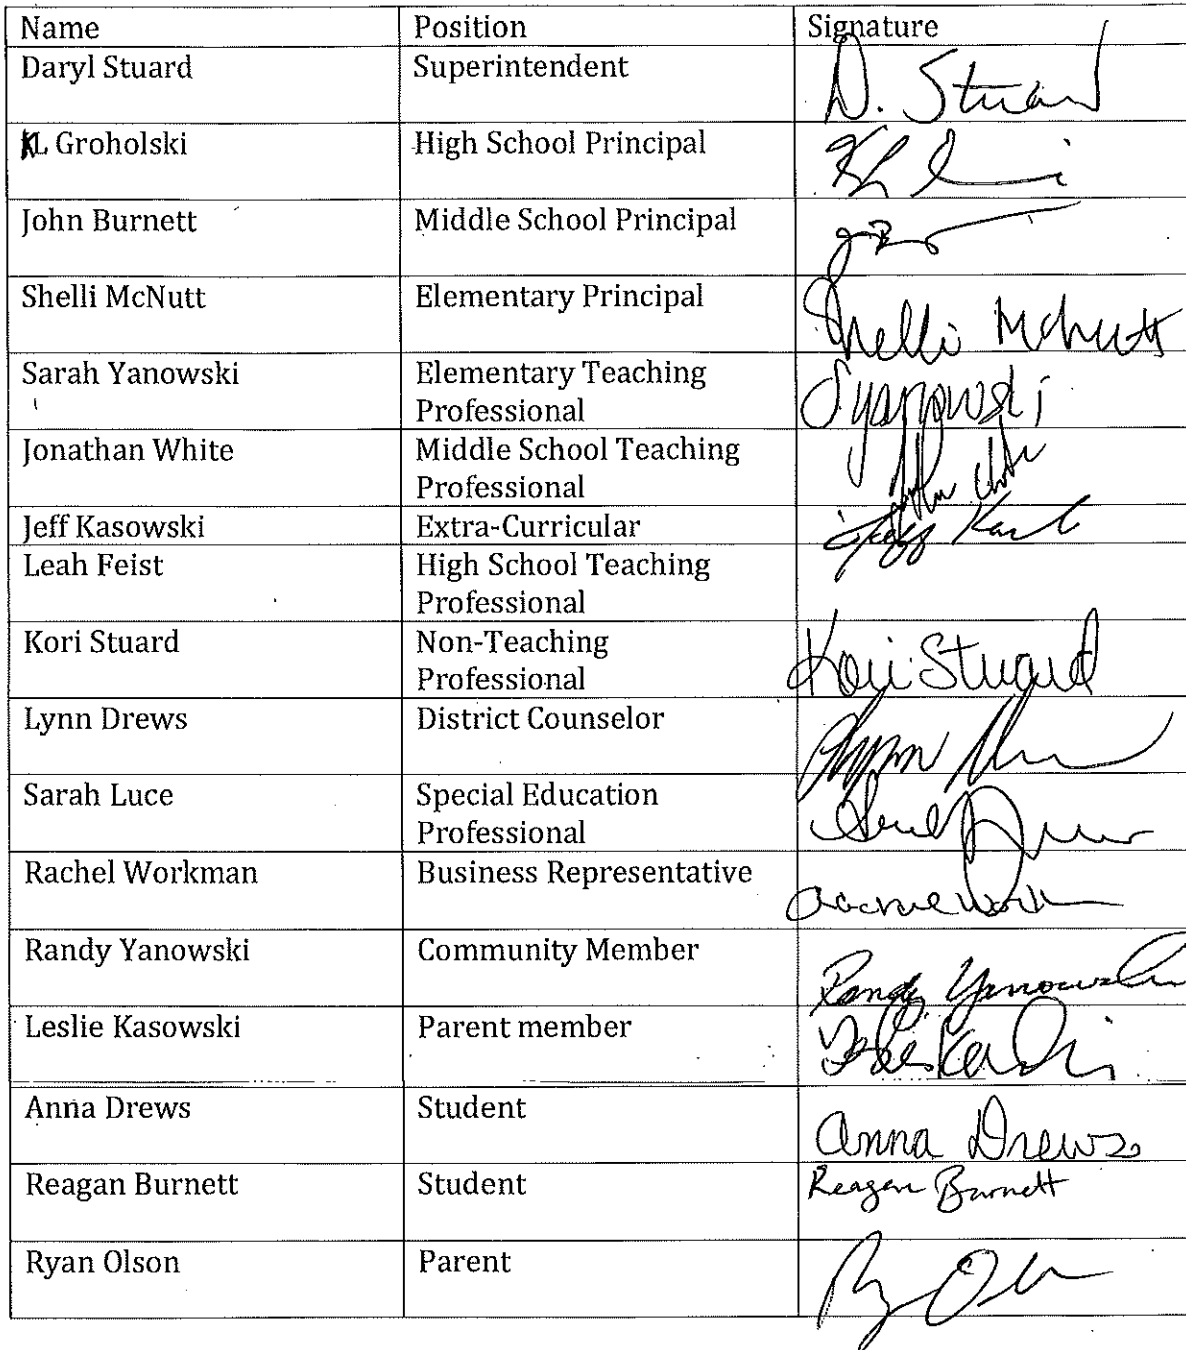 Name Position Signature
Daryl Stuard Superintendent D. Stuard
KL Groholski High School Principal
John Burnett Middle School Principal
Shelli McNutt Elementary Principal Shelli McNutt
Sarah Yanowski Elementary Teaching SYanowski
Professional
Jonathan White Middle School Teaching
Professional
Jeff Kasowski Extra-Curricular Jeff
Leah Feist High School Teaching
Professional
Kori Stuard Non-Teaching Kori Stuard
Professional
Lynn Drews District Counselor Lynn
Sarah Luce Special Education
Professional
Rachel Workman Business Representative
Randy Yanowski Community Member Randy Yanowski
Leslie Kasowski Parent member
Anna Drews Student Anna Drews
Reagan Burnett Student Reagan Burnett
Ryan Olson Parent